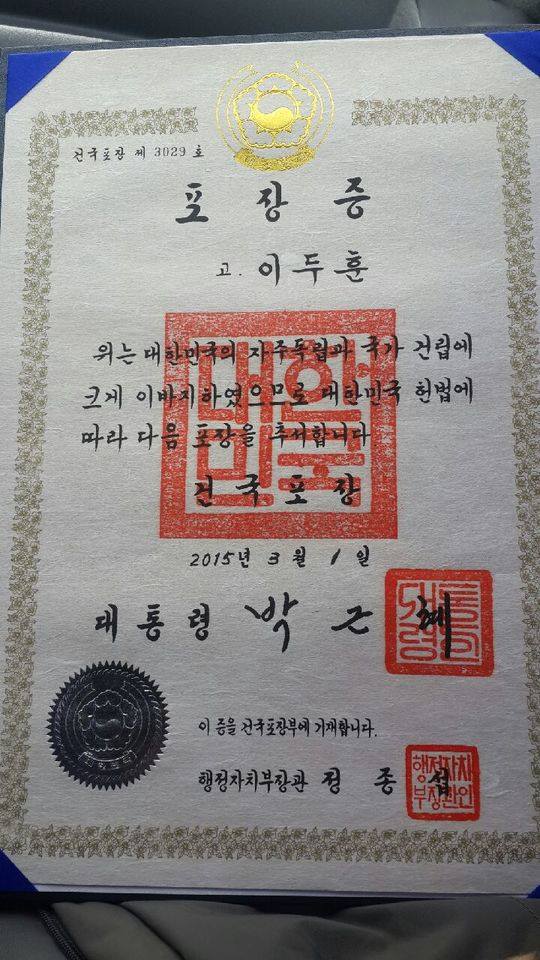 건국포장 제 3029 호
포 장 증
고. 이두훈
위는 대한민국의 자주독립과 국가 건립에
크게 이바지하였으므로 대한민국 헌법에
따라 다음 포장을 추서합니다
건국포장
2015년 3월 1일
대통령 박근혜
이 증을 건국포장부에 기재합니다.
행정자치부장관 정종섭
대한민국
대통령
행정자치
부장관인